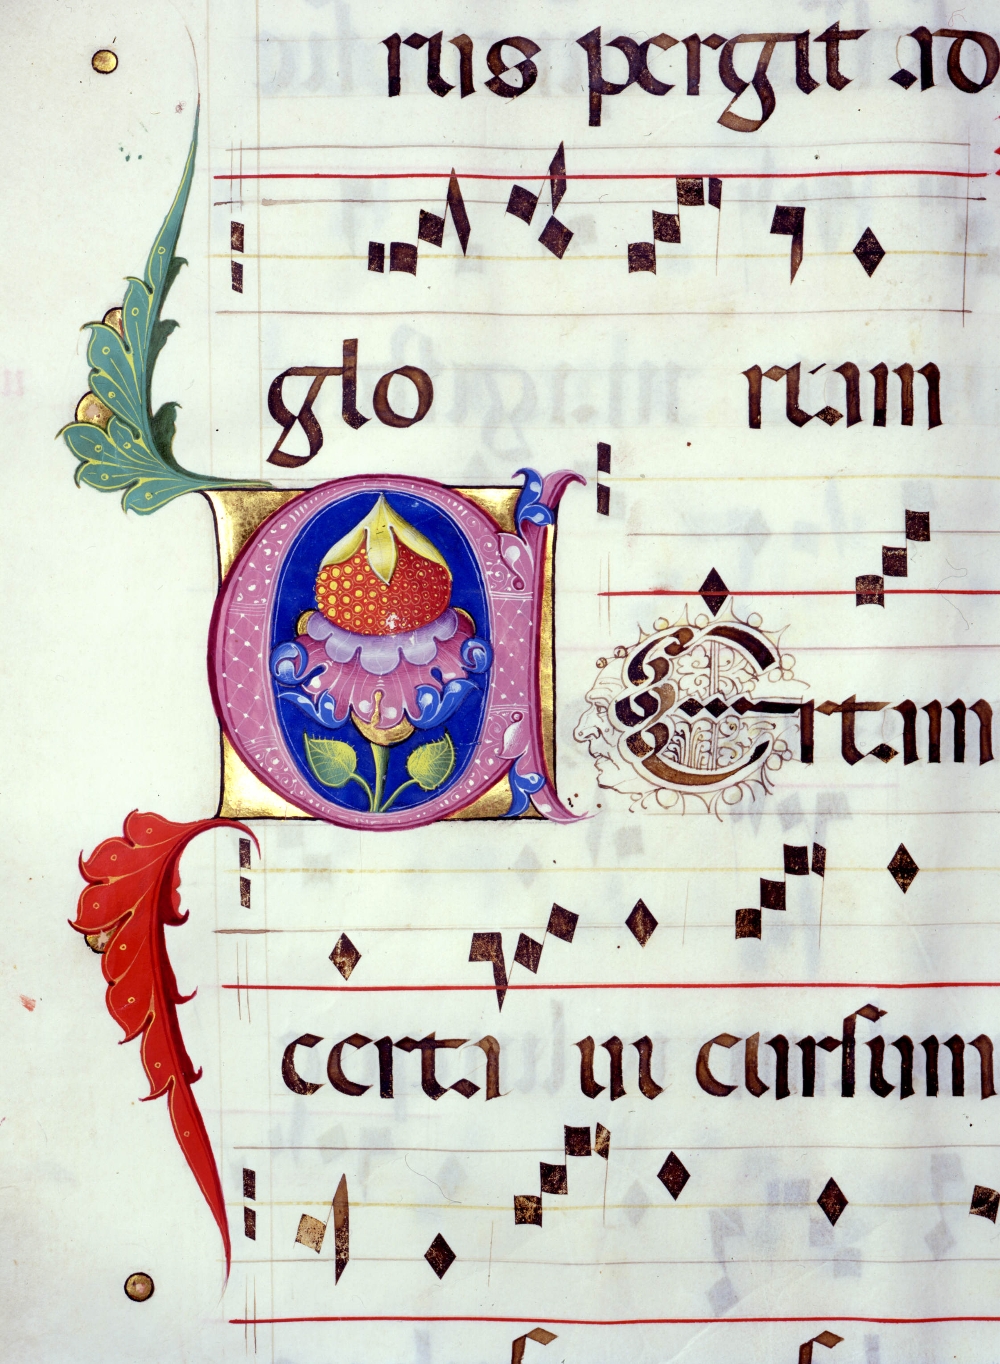 rus pergit ad
glo riam
CErtam
certa in cursum